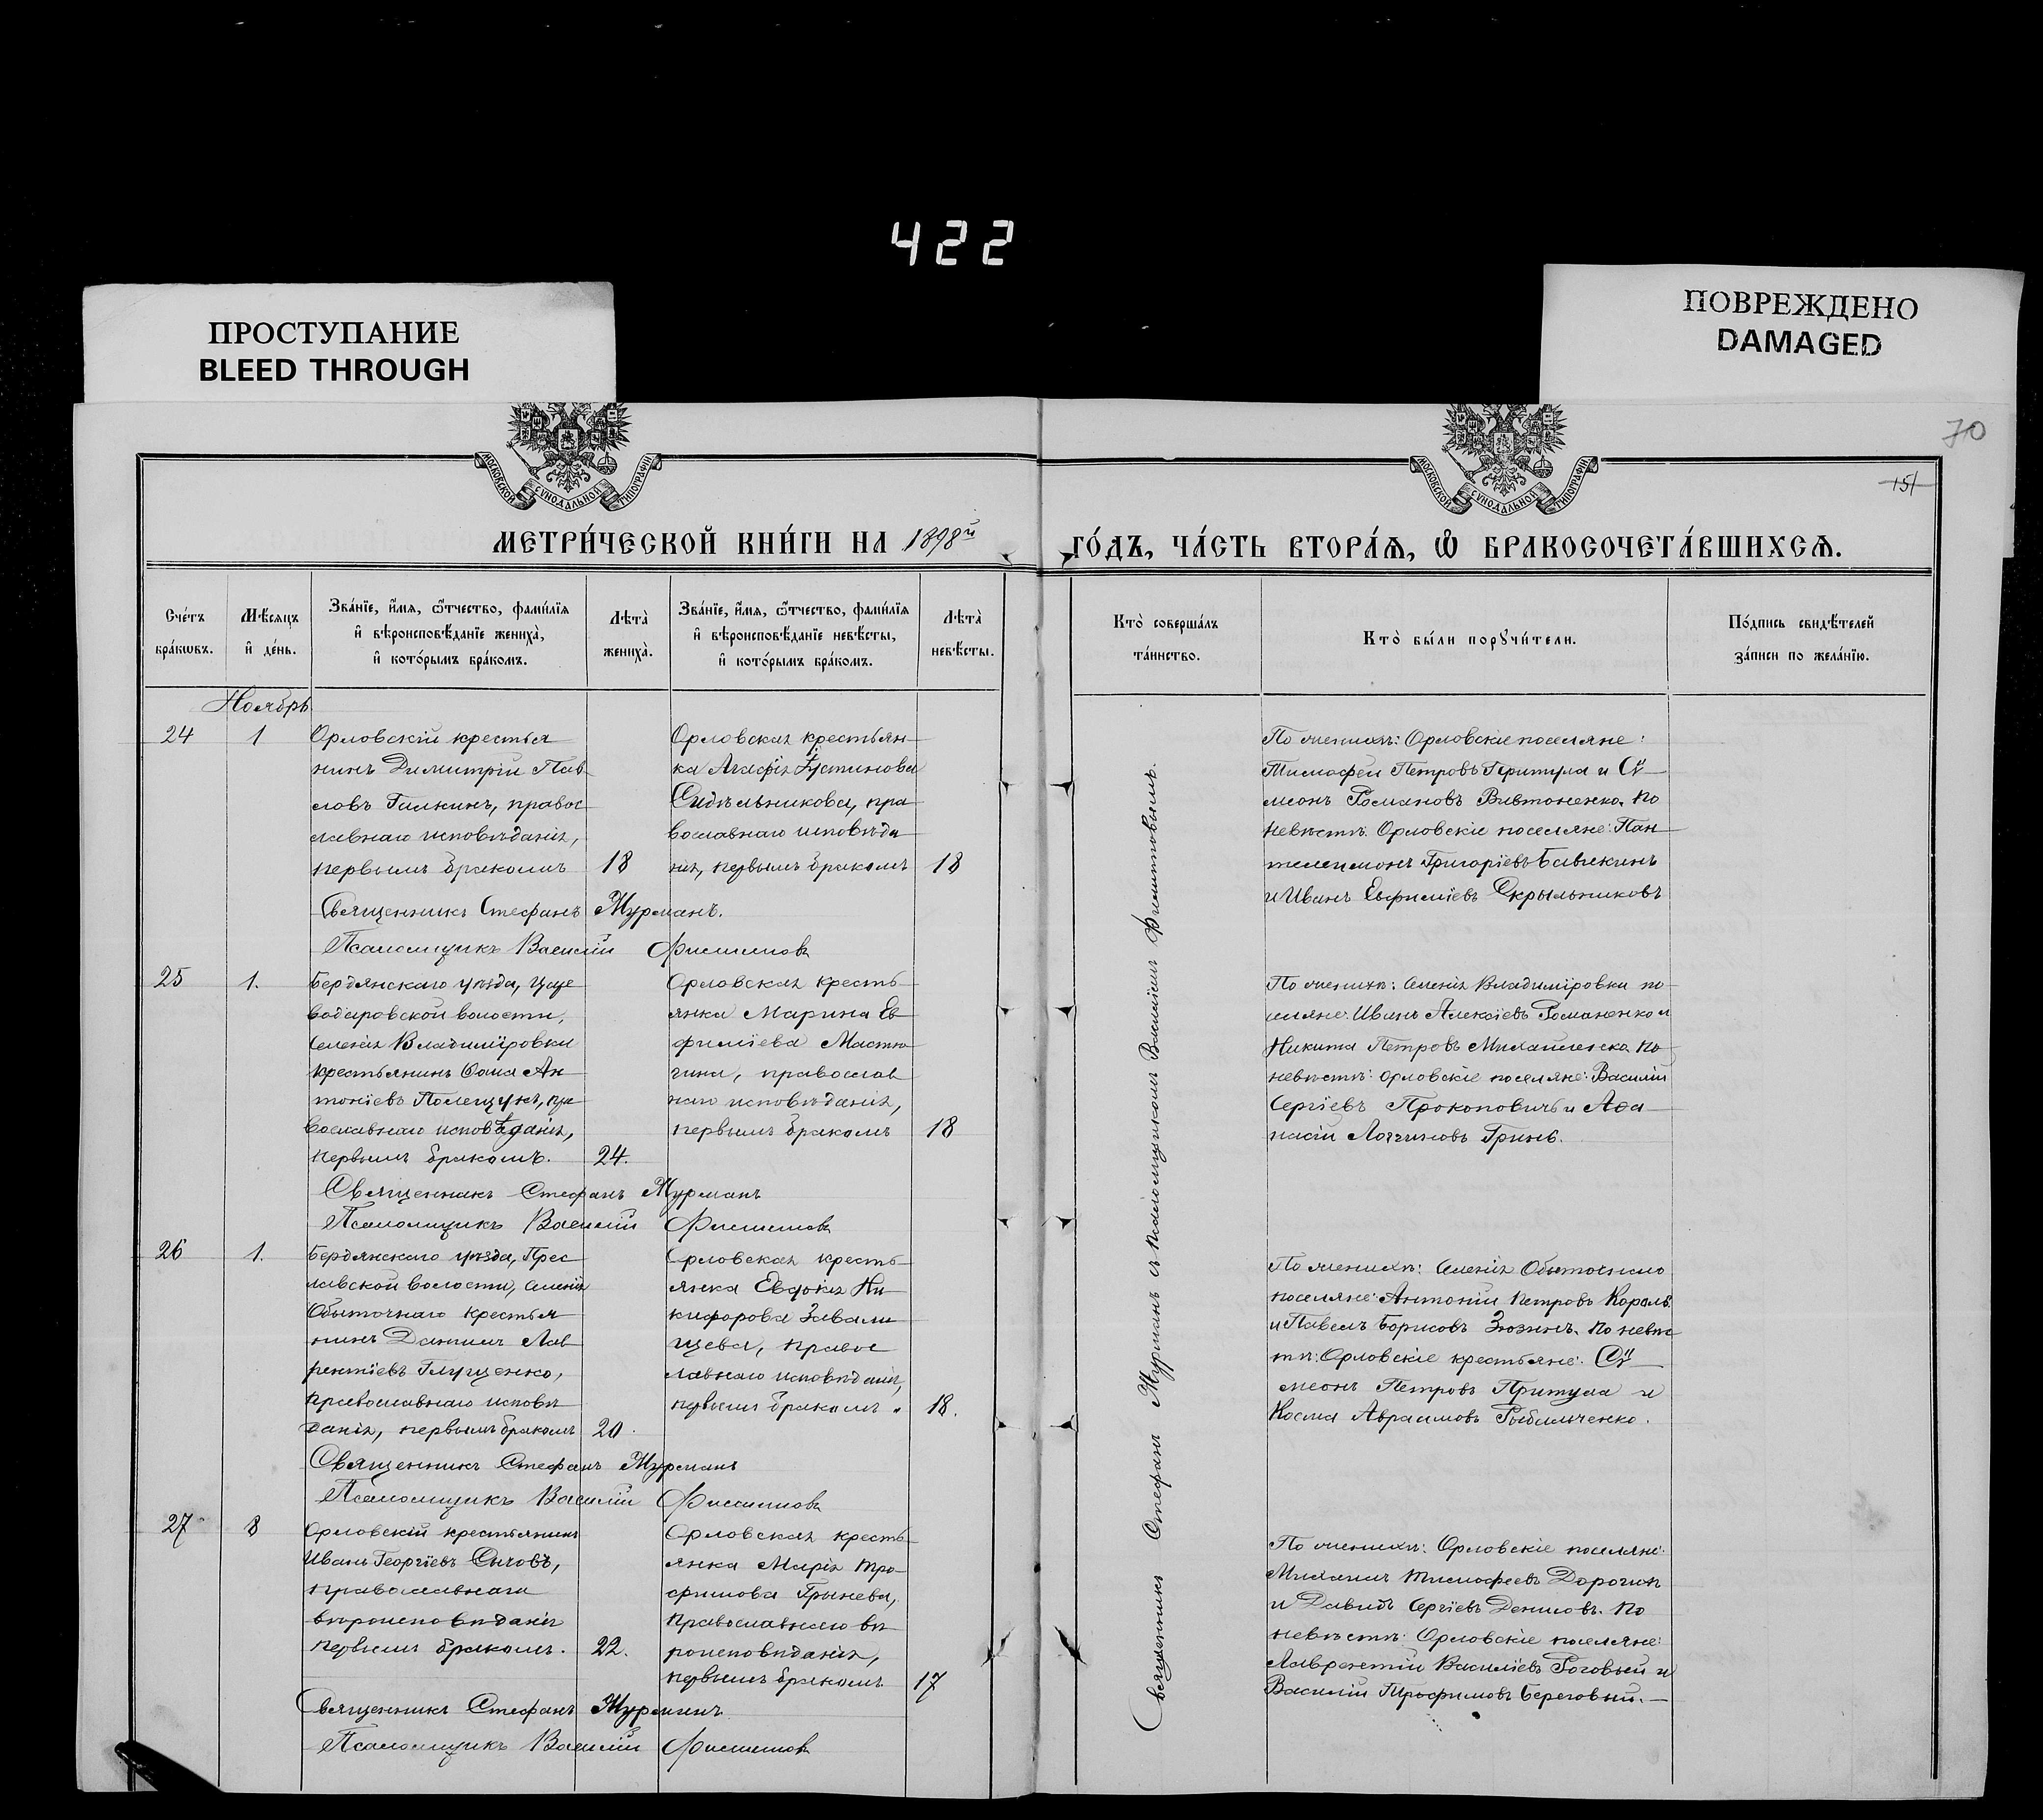 422
ПРОСТУПАНИЕ
BLEED THROUGH
ПОВРЕЖДЕНО
DAMAGED
70
151
МОСКОВСКОЙ СѴНОДАЛЬНОЙ ТИПОГРАФІИ
МОСКОВСКОЙ СѴНОДАЛЬНОЙ ТИПОГРАФІИ
МЕТРИ́ЧЕСКОЙ КНИ́ГИ НА 1898й
ГО́ДЪ, ЧА́СТЬ ВТОРА́Ѧ, Ѡ҆ БРАКОСОЧЕТА́ВШИХСѦ.
Сче́тъ
бра́кѡвъ.
Мѣ́сяцъ
и҆ де́нь.
Зва́нїе, и҆́мя, ѻ҆́тчество, фами́лїя
и҆ вѣроисповѣ́данїе жениха̀,
и҆ кото́рымъ бра́комъ.
Лѣта̀
жениха̀.
Зва́нїе, и҆́мя, ѻ҆́тчество, фами́лїя
и҆ вѣроисповѣ́данїе невѣ́сты,
и҆ кото́рымъ бра́комъ.
Лѣта̀
невѣ́сты.
Кто̀ соверша́лъ
та́инство.
Кто̀ бы́ли порꙋчи́тели.
По́дпись свидѣ́телей
за́писи по жела́нїю.
Ноябрь
24
1
Орловскій крестья
нинъ Димитрій Пав
ловъ Галкинъ, правос
лавнаго исповѣданія,
первымъ бракомъ
18
Орловская крестьян
ка Агафія Іустинова
Сидѣльникова, пра
вославнаго исповѣда
нія, первымъ бракомъ
18
По женихѣ: Орловскіе поселяне:
Тимофей Петровъ Притула и Сѵ
меонъ Романовъ Вивтоненко. По
невѣстѣ: Орловскіе поселяне: Пан
телеимонъ Григоріевъ Бавыкинъ
и Иванъ Евфиміевъ Скрыльниковъ
Священникъ Стефанъ Мурманъ.
Псаломщикъ Василій Филиповъ
25
1.
Бердянскаго уѣзда, Царе
водаровской волости,
селенія Владиміровки
крестьянинъ Ѳома Ан
тоніевъ Полещукъ, пра
вославнаго исповѣданія,
первымъ бракомъ.
24.
Орловская кресть
янка Марина Ев
фиміева
православ
наго исповѣданія,
первымъ бракомъ
18
По женихѣ: селенія Владиміровки по
селяне: Иванъ Алексіевъ Романенко и
Никита Петровъ Михайленко. По
невѣстѣ: Орловскіе поселяне: Василій
Сергіевъ Прокоповичъ и Аѳа
насій Логгиновъ Гринь.
Священникъ Стефанъ Мурманъ
Псаломщикъ Василій Филиповъ
26
1.
Бердянскаго уѣзда, Прес
лавской волости, селенія
Обыточнаго крестья
нинъ Даніилъ Лав
рентіевъ Глущенко,
православнаго исповѣ
данія, первымъ бракомъ
20.
Орловская кресть
янка Евдокія Ни
кифорова Завали
щева, правос
лавнаго исповѣданія,
первымъ бракомъ.
18.
По женихѣ: селенія Обыточнаго
поселяне: Антоній Петровъ Король
и Павелъ Борисовъ Зюзинъ. По невѣс
тѣ: Орловскіе крестьяне: Сѵ
меонъ Петровъ Притула и
Косма Авраамовъ Рыбальченко.
Священникъ Стефанъ Мурманъ
Псаломщикъ Василій Филиповъ
27
8
Орловскій крестьянинъ
Иванъ Георгіевъ Сычовъ,
православнаго
вѣроисповѣданія
первымъ бракомъ.
22.
Орловская кресть
янка Марія Тро
фимова Грынева,
православнаго вѣ
роисповѣданія,
первымъ бракомъ
17
По женихѣ: Орловскіе поселяне:
Михаилъ Тимофеевъ
и Давидъ Сергіевъ Денисовъ. По
невѣстѣ: Орловскіе поселяне:
Лаврентій Василіевъ Роговый и
Василій Трофимовъ Береговый.
Священникъ Стефанъ Мурманъ
Псаломщикъ Василій Филиповъ
Священникъ Стефанъ Мурманъ съ псаломщикомъ Василіемъ Филиповымъ.